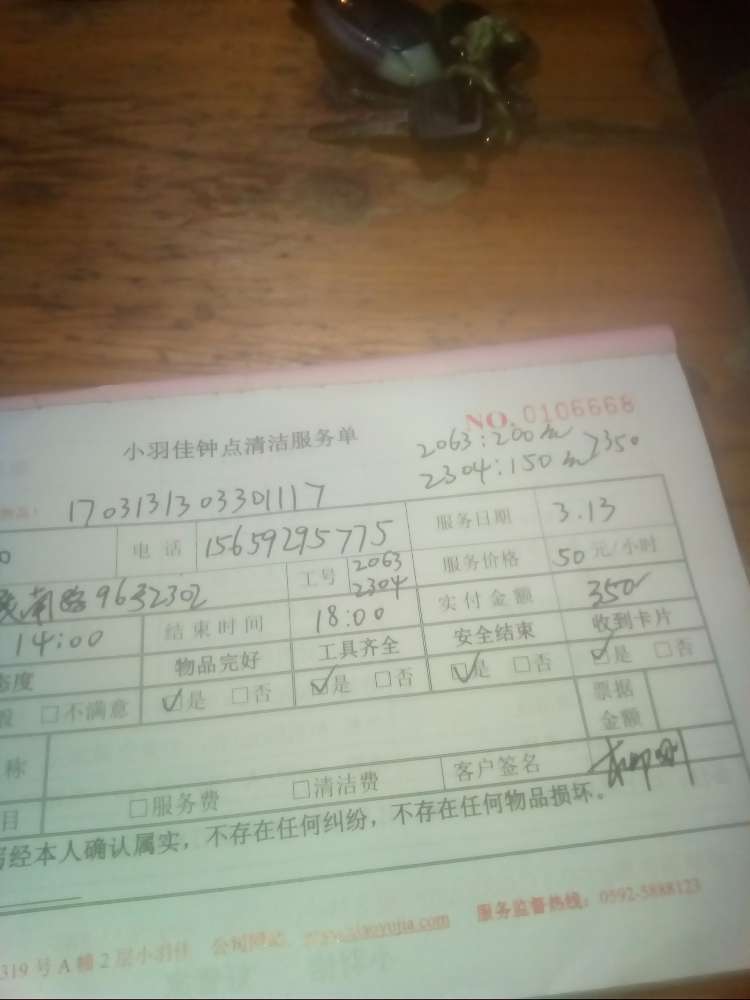 NO. 0106668
小羽佳钟点清洁服务单
2063:200m
2304:150m >350
1703131303301117
电话 15659295775 服务日期 3.13
南路9632302 工号 2063 2304 服务价格 50元/小时
14:00 结束时间 18:00 实付金额 350
态度 物品完好 工具齐全 安全结束 收到卡片
般 □不满意 ☑是 □否 ☑是 □否 ☑是 □否 ☑是 □否
称 票据金额
目 □服务费 □清洁费 客户签名
经本人确认属实，不存在任何纠纷，不存在任何物品损坏。
319号A幢2层小羽佳 公司网站：www.xiaoyujia.com 服务监督热线：0592-5888123